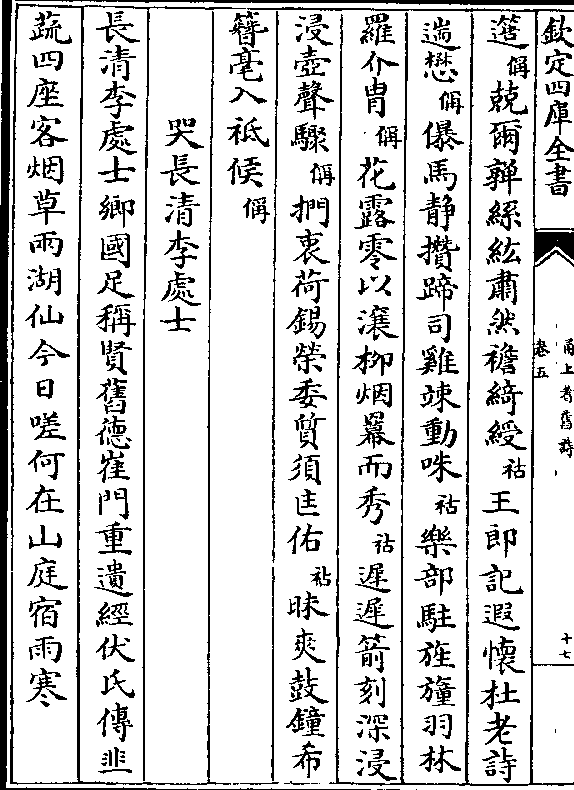 欽定四庫全書
甬上耆舊詩
卷五
十七
簉稱兢爾鞸絲紘肅然襜綺綬祜王郎記遐懷杜老詩
遄懋稱儤馬静攢蹄司雞竦動咮祜樂部駐旌旜羽林
羅介胄稱花露零以瀼栁烟羃而秀祜遲遲箭刻深浸
浸壺聲驟稱捫衷荷錫榮委質須匡佑祜昧爽鼓鐘希
簪毫入祗候稱
哭長清李處士
長清李處士鄉國足稱賢舊徳崔門重遺經伏氏傳韭
蔬四座客烟草兩湖仙今日嗟何在山庭宿雨寒